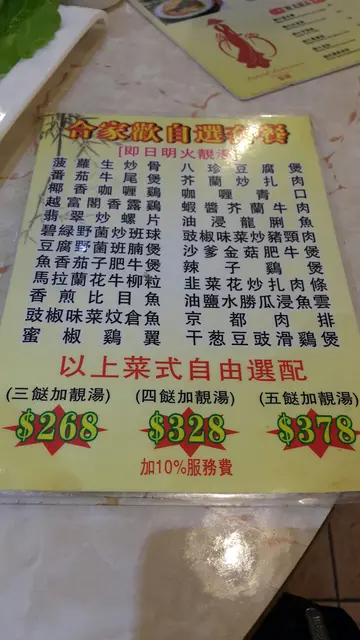 合家歡自選套餐
[即日明火靚湯]
菠蘿生炒骨 八珍豆腐煲
番茄牛尾煲 芥蘭炒扎肉
椰香咖喱鷄 咖喱青口
越富閣香露鷄 蝦醬芥蘭牛肉
翡翠炒螺片 油浸龍脷魚
碧綠野菌炒班球 豉椒味菜炒豬頸肉
豆腐野菌班腩煲 沙爹金菇肥牛煲
魚香茄子肥牛煲 辣子鷄煲
馬拉蘭花牛柳粒 韭菜花炒扎肉條
香煎比目魚 油鹽水勝瓜浸魚雲
豉椒味菜炆倉魚 京都肉排
蜜椒鷄翼 干葱豆豉滑鷄煲
以上菜式自由選配
(三餸加靚湯) (四餸加靚湯) (五餸加靚湯)
$268 $328 $378
加10%服務費